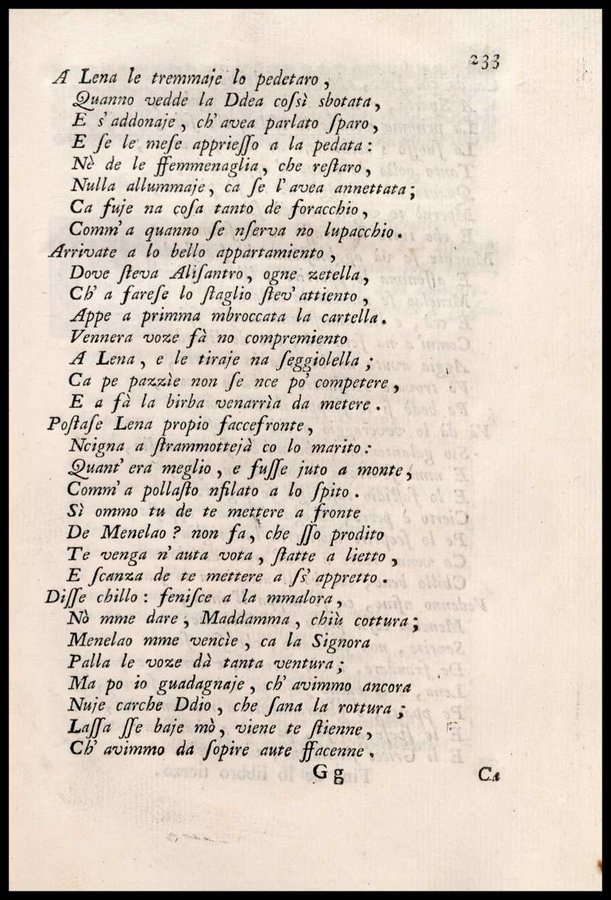 233
A Lena le tremmaje lo pedetaro,
Quanno vedde la Ddea coſsì sbotata,
E s'addonaje, ch'avea parlato ſparo,
E ſe le meſe apprieſſo a la pedata:
Nè de le ffemmenaglia, che reſtaro,
Nulla allummaje, ca ſe l'avea annettata;
Ca fuje na coſa tanto de foracchio,
Comm'a quanno ſe nſerva no lupacchio.
Arrivate a lo bello appartamiento,
Dove ſteva Aliſantro, ogne zetella,
Ch' a fareſe lo ſtaglio ſtev'attiento,
Appe a primma mbroccata la cartella.
Vennera voze fà no compremiento
A Lena, e le tiraje na ſeggiolella;
Ca pe pazzìe non ſe nce pò competere,
E a fà la birba venarrìa da metere.
Poſtaſe Lena propio faccefronte,
Ncigna a ſtrammottejà co lo marito:
Quant' era meglio, e fuſſe juto a monte,
Comm'a pollaſto nfilato a lo ſpito.
Sì ommo tu de te mettere a fronte
De Menelao? non fa, che ſſo prodito
Te venga n'auta vota, ſtatte a lietto,
E ſcanza de te mettere a ſs'appretto.
Diſſe chillo: feniſce a la mmalora,
Nò mme dare, Maddamma, chiù cottura;
Menelao mme vencìe, ca la Signora
Palla le voze dà tanta ventura;
Ma po io guadagnaje, ch'avimmo ancora
Nuje carche Ddio, che ſana la rottura;
Laſſa ſſe baje mò, viene te ſtienne,
Ch' avimmo da ſopire aute ffacenne.
G g
Ca